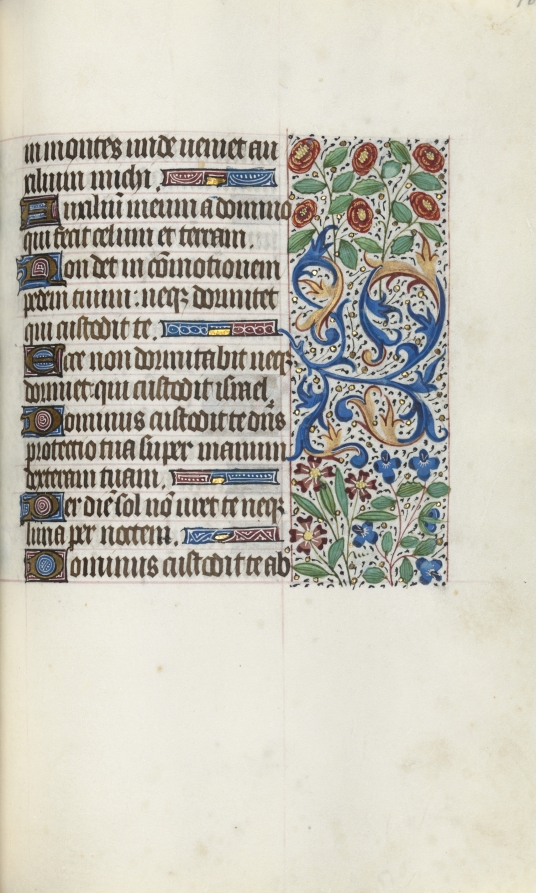 in montes unde veniet au
xilium michi.
Auxiliū meum a domino
qui fecit celum et terram.
Non det in cōmotionem
pedem tuum: neqʒ dormitet
qui custodit te.
Ecce non dormitabit neqʒ
dormiet: qui custodit israel
Dominus custodit te dn̄s
protectio tua super manum
dexteram tuam.
Per diē sol nō uret te neqʒ
luna per noctem.
Dominus custodit te ab